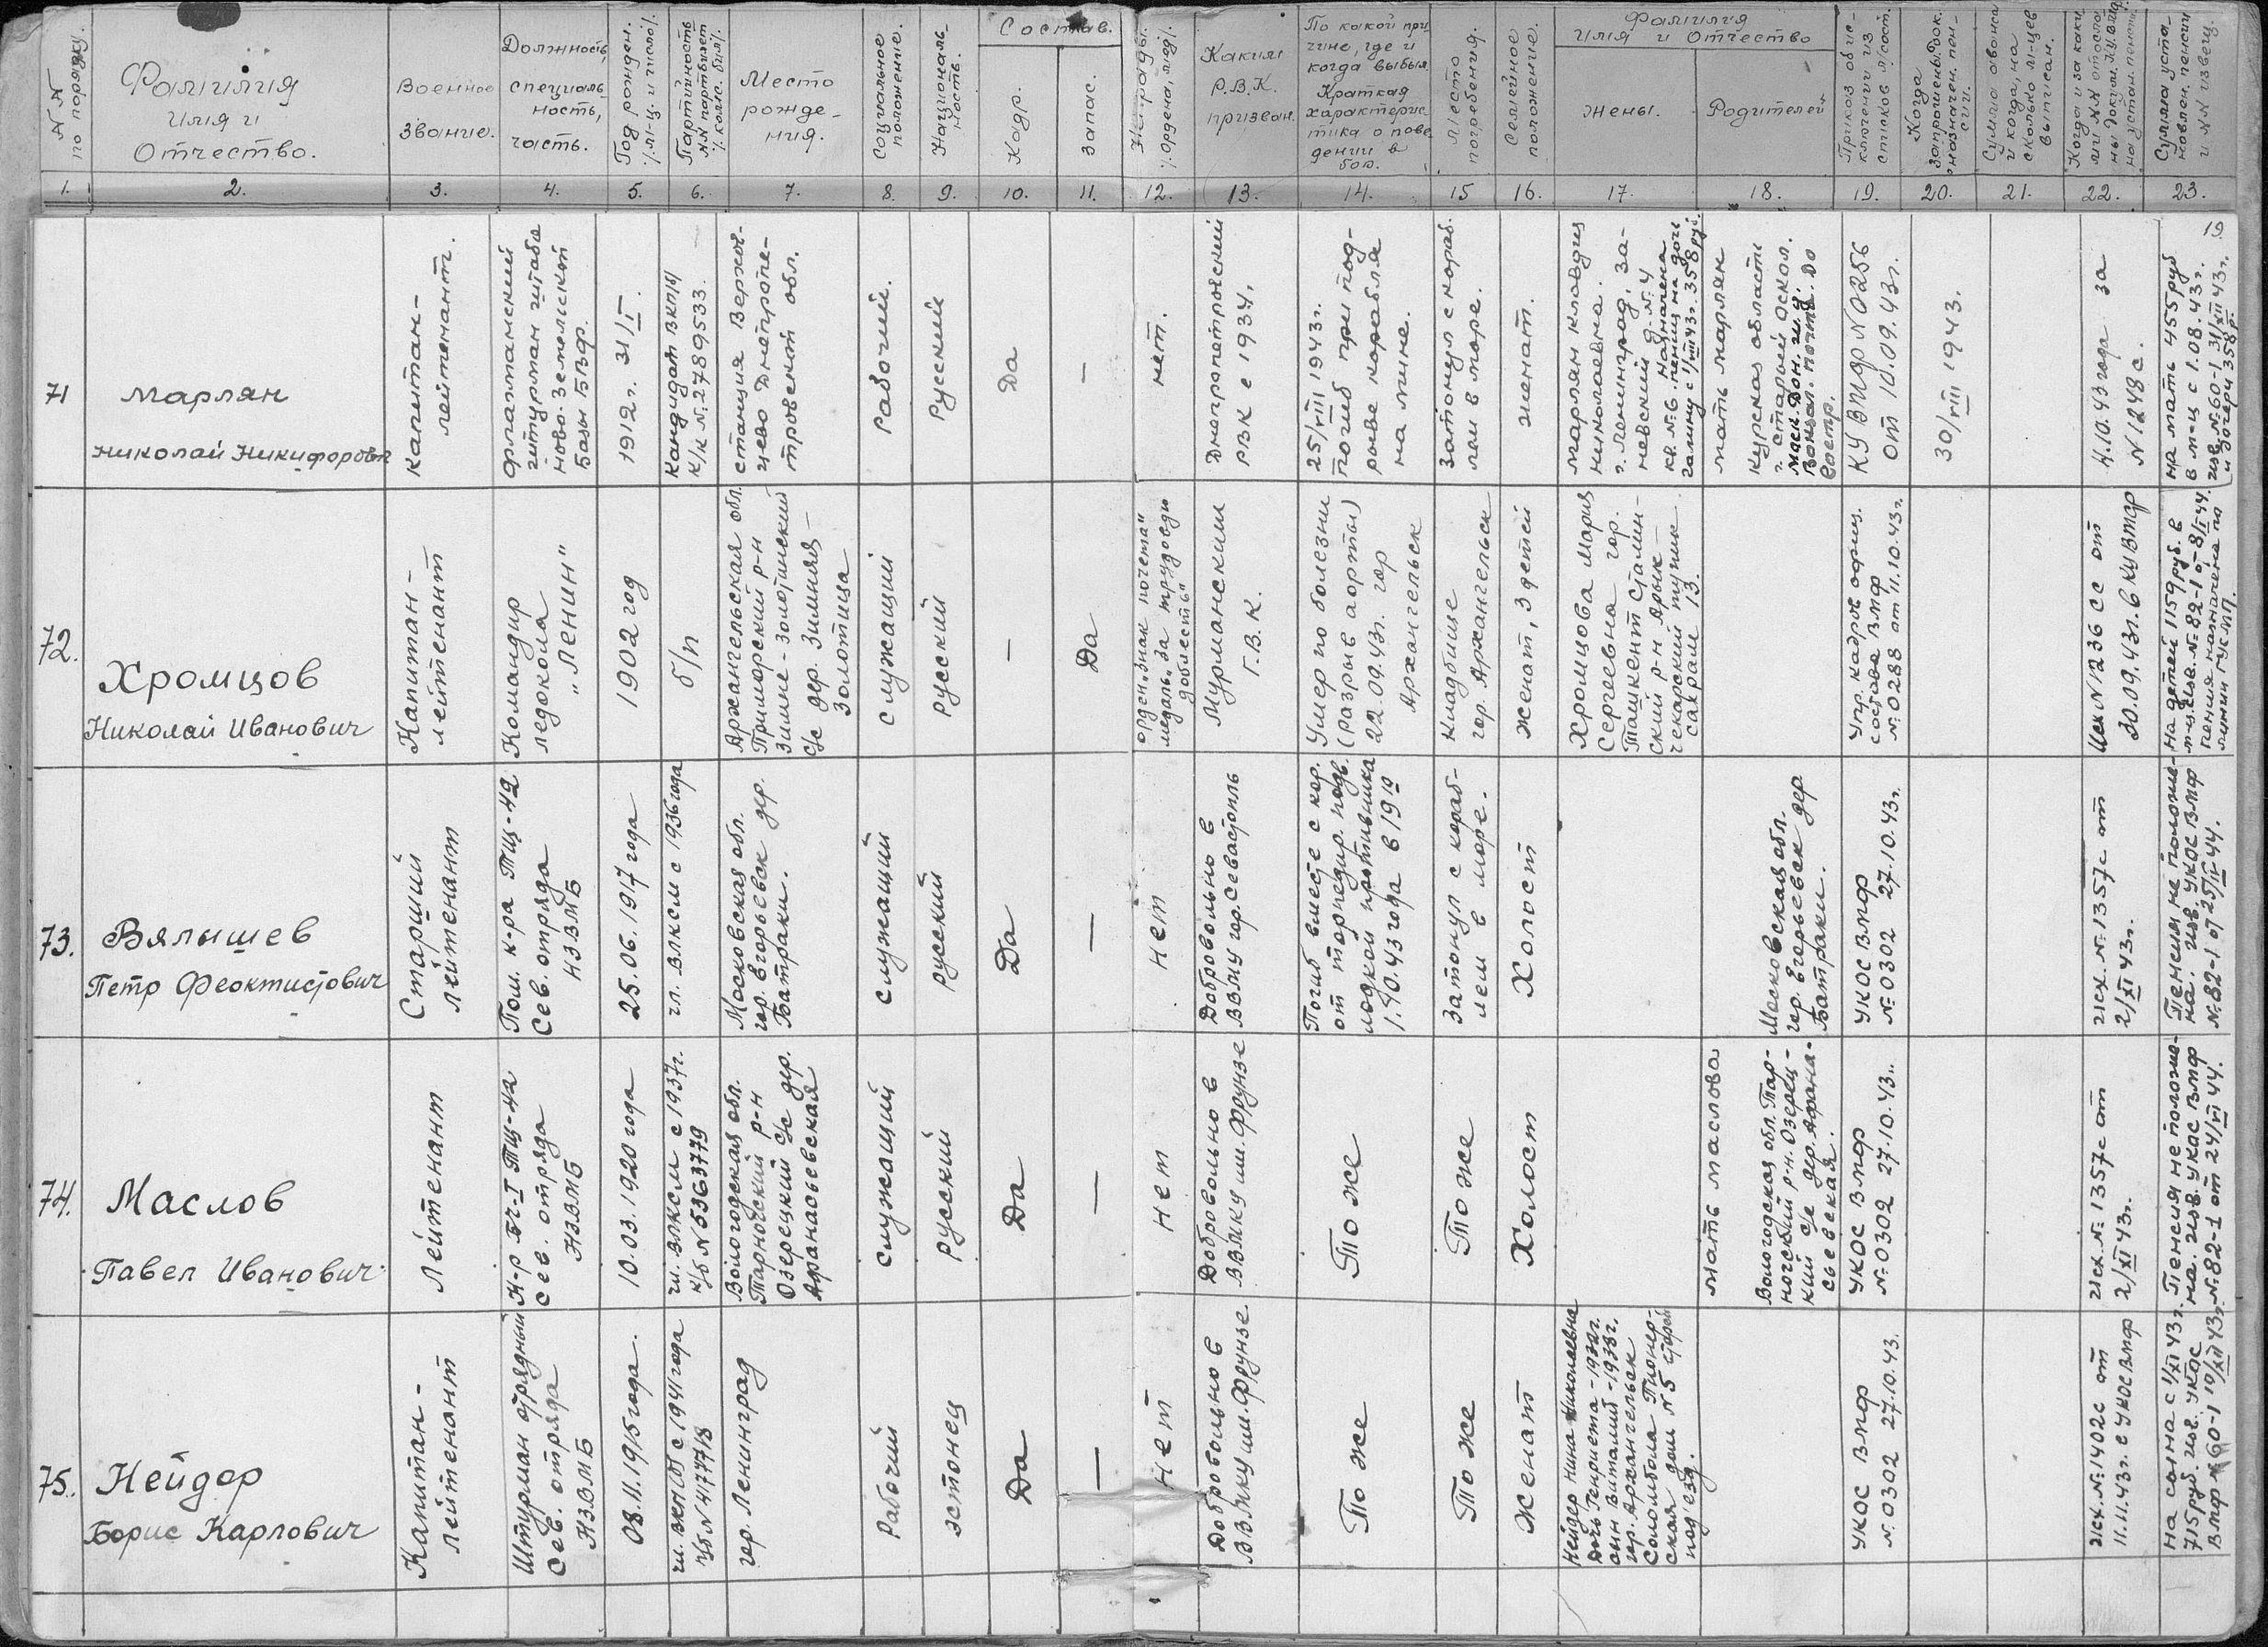 №№ по порядку.
Фамилия
имя и
Отчество.
Военное
звание.
Должность,
специаль-
ность,
часть.
Год рожден.
/м-ц и число/.
Партийность
№№ партбилет.
/комс. бил/.
Место
рожде-
ния.
Социальное
положение.
Националь-
ность.
Состав.
Кадр.
запас.
Награды.
/ордена, мед/.
Каким
Р.В.К.
призван.
По какой при-
чине, где и
когда выбыл.
Краткая
характерис-
тика о пове-
дении в
бою.
Место
погребения.
Семейное
положение.
Фамилия
имя и Отчество
жены.
Родителей
Приказ об ис-
ключении из
списков л/сост.
Когда
запрошены док.
назначен. пен-
сии.
Сумма
и когда, на
сколько м-цев
выписан.
Когда и за каки-
ми №№
на устан. пенсии
Сумма уста-
новлен. пенсии
и №№ извещ.
1. 2. 3. 4. 5. 6. 7. 8. 9. 10. 11. 12. 13. 14. 15 16. 17. 18. 19. 20. 21. 22. 23.
19
71
Марлян
Николай Никифорович
капитан-
лейтенант.
Флагманский
штурман штаба
Ново-земельской
базы БВФ.
1912 г. 31/I.
Кандидат ВКП/б/
к/к №2789533.
станция Верхов-
цево Днепропе-
тровской обл.
Рабочий.
Русский
Да
—
нет.
Днепропетровский
РВК с 1934.
25/VIII 1943 г.
погиб при под-
рыве корабля
на мине.
затонул с кораб-
лем в море.
женат.
Марлян Клавдия
Николаевна.
г. Ленинград, За-
невский д. №4
кв №6. назначена
пенсия на дочь
Галину с 1/VIII 43 г. 358 руб.
мать Марлян
Курская область
г. Старый Оскол.
до
востр.
КУ ВМФ №0256
от 10.09.43 г.
30/VIII 1943.
4.10.43 года за
№1248с.
на мать 455 руб
в м-ц с 1.08.43 г.
изв. №60-1 31/XII 43 г.
и дочери 358 р.
72.
Хромцов
Николай Иванович
Капитан-
лейтенант
Командир
ледокола
„Ленин"
1902 год
б/п
Архангельская обл.
Приморский р-н
Зимне-Золотицкий
с/с дер. Зимняя-
Золотица
служащий
русский
—
Да
орден „знак почета"
медаль „за трудовую
доблесть"
Мурманским
Г.В.К.
Умер по болезни
(разрыв аорты)
22.09.43 г. гор
Архангельск
Кладбище
гор. Архангельск
женат, 3 детей
Хромцова Мария
Сергеевна гор.
Ташкент Сталин-
ский р-н Арык-
13.
Упр. кадров офиц.
состава ВМФ
№0288 от 11.10.43 г.
Исх №1236сс от
30.09.43 г. в КУВМФ
На детей 1159 руб. в
м-ц. изв. №82-1 от 8/II 44.
Пенсия назначена по
линии ГУСМП.
73.
Вялышев
Петр Феоктистович
Старший
лейтенант
Пом. к-ра ТЩ-42
Сев. отряда
НЗВМБ
25.06.1917 года
чл. ВЛКСМ с 1936 года
Московская обл.
гор. Егорьевск дер.
Батраки.
служащий
русский
Да
—
Нет
Добровольно в
ВВМУ гор. Севастополь
Погиб вместе с кор.
от торпедир. подв.
лодкой противника
1.10.43 года в 19 10
Затонул с кораб-
лем в море.
Холост
Московская обл.
гор. Егорьевск дер
Батраки.
УКОС ВМФ
№0302 27.10.43 г.
исх. №1357с от
2/XI 43 г.
Пенсия не положе-
на. изв. УКОС ВМФ
№82-1 от 25/II-44.
74.
Маслов
Павел Иванович
Лейтенант
К-р БЧ-I ТЩ-42
Сев. отряда
НЗВМБ
10.03.1920 года
чл. ВЛКСМ с 1937 г.
к/б №5363779
Вологодская обл.
Тарногский р-н
Озерецкий с/с дер.
Афанасьевская
служащий
русский
Да
—
Нет
Добровольно в
ВВМКУ им. Фрунзе
То же
То же
Холост
мать Маслова
Вологодская обл. Тар-
ногский р-н. Озерец-
кий с/с дер. Афана-
сьевская.
УКОС ВМФ
№0302 27.10.43 г.
исх. №1357с от
2/XI 43 г.
Пенсия не положе-
на. изв. УКОС ВМФ
№82-1 от 24/VI 44.
75.
Нейдер
Борис Карлович
Капитан-
лейтенант
Штурман отрядный
Сев. отряда
НЗВМБ
08.11.1915 года.
чл. ВКП(б) с 1941 года
п/б №4177718
гор. Ленинград
Рабочий
эстонец
Да
—
Нет
Добровольно в
ВВМКУ им. Фрунзе
То же
То же
Женат
Нейдер Нина Николаевна
Дочь Генриета-1932 г.
сын Виталий-1938 г.
гор. Архангельск
Соломбала Пионер-
ская дом №5 старый
подъезд.
УКОС ВМФ
№0302 27.10.43.
исх. №1402с от
11.11.43 г. в УКОС ВМФ
На сына с 1/XI 43 г.
715 руб. изв. УКОС
ВМФ №60-1 10/XII 43 г.